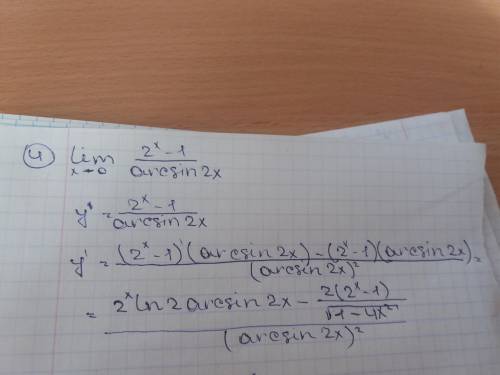 4) lim x→0 (2^x - 1)/(arcsin 2x)
y' = (2^x - 1)/(arcsin 2x)
y' = ((2^x - 1)'(arcsin 2x) - (2^x - 1)(arcsin 2x)')/(arcsin 2x)^2 =
= (2^x ln 2 arcsin 2x - (2(2^x - 1))/(√(1 - 4x^2)))/(arcsin 2x)^2